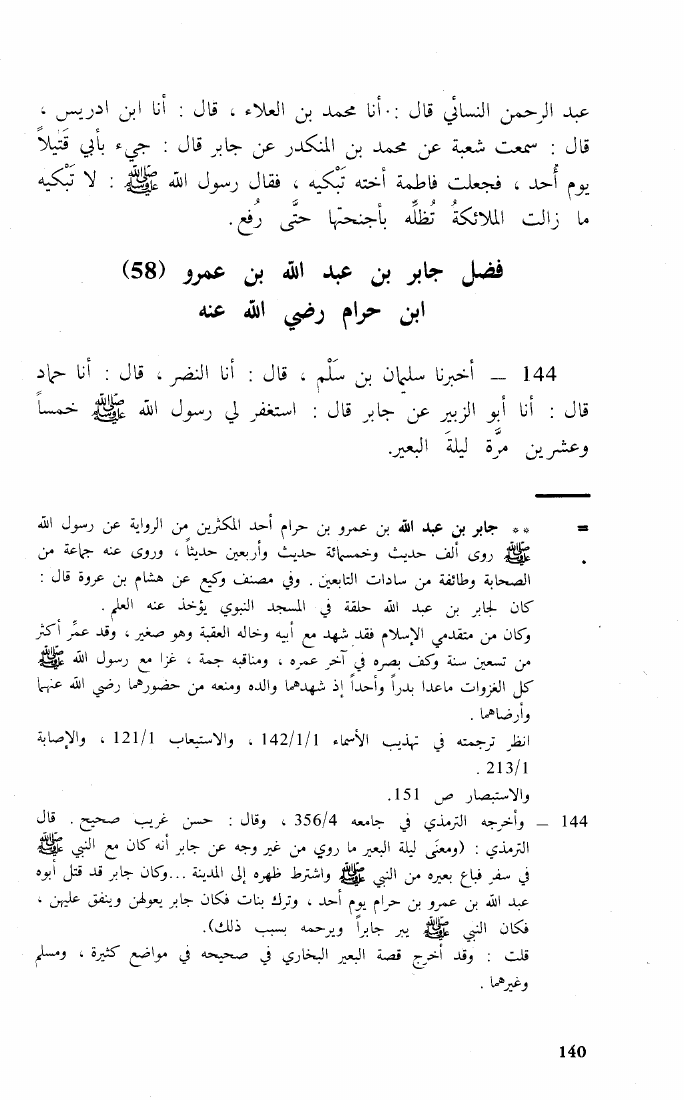 عبد الرحمن النسائي قال : أنا محمد بن العلاء ، قال : أنا ابن ادريس ،
قال : سمعت شعبة عن محمد بن المنكدر عن جابر قال : جيء بأبي قَتيلاً
يوم أُحد ، فجعلت فاطمة أخته تَبْكيه ، فقال رسول الله ﷺ : لا تَبْكيه
ما زالت الملائكةُ تُظلُّه بأجنحتها حتَّى رُفع.
فضل جابر بن عبد الله بن عمرو (58)
ابن حرام رضي الله عنه
144 ـ أخبرنا سليمان بن سَلْم ، قال : أنا النضر ، قال : أنا حماد
قال : أنا أبو الزبير عن جابر قال : استغفر لي رسول الله ﷺ خمساً
وعشرين مرَّة ليلةَ البعير.
= ** جابر بن عبد الله بن عمرو بن حرام أحد المكثرين من الرواية عن رسول الله
ﷺ روى ألف حديث وخمسمائة حديث وأربعين حديثاً ، وروى عنه جماعة من
الصحابة وطائفة من سادات التابعين . وفي مصنف وكيع عن هشام بن عروة قال :
كان لجابر بن عبد الله حلقة في المسجد النبوي يؤخذ عنه العلم .
وكان من متقدمي الإسلام فقد شهد مع أبيه وخاله العقبة وهو صغير ، وقد عمِّر أكثر
من تسعين سنة وكف بصره في آخر عمره ، ومناقبه جمة ، غزا مع رسول الله ﷺ
كل الغزوات ماعدا بدراً وأحداً إذ شهدهما والده ومنعه من حضورهما رضي الله عنهما
وأرضاهما .
انظر ترجمته في تهذيب الأسماء 142/1/1 ، والاستيعاب 121/1 ، والإصابة
213/1 .
والاستبصار ص 151.
144 ـ وأخرجه الترمذي في جامعه 356/4 ، وقال : حسن غريب صحيح . قال
الترمذي : (ومعنى ليلة البعير ما روي من غير وجه عن جابر أنه كان مع النبي ﷺ
في سفر فباع بعيره من النبي ﷺ واشترط ظهره إلى المدينة ...وكان جابر قد قتل أبوه
عبد الله بن عمرو بن حرام يوم أحد ، وترك بنات فكان جابر يعولهن وينفق عليهن ،
فكان النبي ﷺ يبر جابراً ويرحمه بسبب ذلك).
قلت : وقد أخرج قصة البعير البخاري في صحيحه في مواضع كثيرة ، ومسلم
وغيرهما .
140